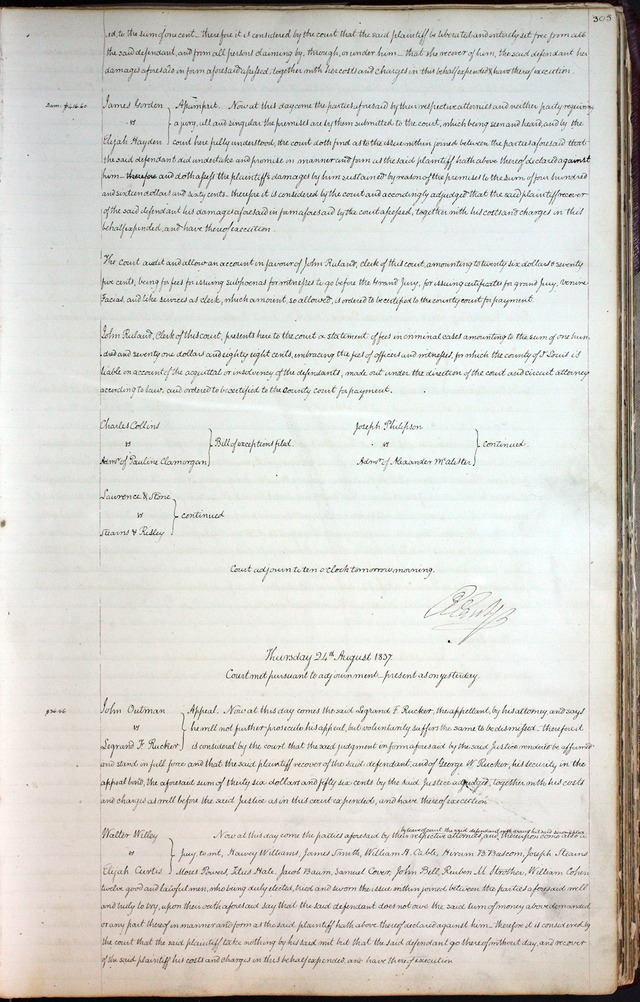 305
ed, to the sum of one cent_ therefore it is considered by the court that the said plaintiff be liberated and entirely set free from all
the said defendant, and from all persons claiming by, through, or under him_ that she recover of him, the said defendant her
damages aforesaid in form aforesaid assessed, together with her costs and charges in this behalf expended & have thereof execution.
Dam. $416.60
James Gorden } Assumpsit. Now at this day come the parties aforesaid by their respective attornies and neither party requiring
vs a jury, all and singular the premises are by them submitted to the court, which being seen and heard, and by the
Elijah Hayden court here fully understood, the court doth find as to the issue within joined between the parties aforesaid that
the said defendant did undertake and promise in manner and form as the said plaintiff hath above thereof declared against
him_ therefore and doth assess the plaintiff's damages by him sustained by reason of the premises to the sum of four hundred
and sixteen dollars and sixty cents_ therefore it is considered by the court and accordingly adjudged that the said plaintiff recover
of the said defendant his damages aforesaid in form aforesaid by the court assessed, together with his costs and charges in this
behalf expended, and have thereof execution.
The Court audit and allow an account in favour of John Ruland, clerk of this court, amounting to twenty six dollars & seventy
five cents, being for fees for issuing subpoenas for witnesses to go before the Grand Jury, for issuing certificates for grand Jury, Venire
Facias, and like services as clerk, which amount, so allowed, is ordered to be certified to the county court for payment.
John Ruland, Clerk of this court, presents here to the court a statement of fees in criminal cases amounting to the sum of one hun
dred and seventy one dollars and eighty eight cents, embracing the fees of officers and witnesses, for which the county of St Louis is
liable on account of the acquittal or insolvency of the defendants, made out under the direction of the court and circuit attorney
according to law. and ordered to be certified to the County court for payment.
Charles Collins
vs } Bill of exceptions filed.
Admr of Pauline Clamorgan
Joseph Philipson
vs } continued.
Admr of Alexander McAlister
Lawrence & Stone
vs } continued
Stearns & Risley
Court adjourn to ten o'clock tomorrow morning.
Thursday 24th August 1837.
Court met pursuant to adjournment_ present as on yesterday.
$36.56
John Outman } Appeal. Now at this day comes the said Legrand F. Rucker, the appellant, by his attorney, and says
vs he will not further prosecute his appeal, but voluntarily suffers the same to be dismissed_ therefore it
Legrand F. Rucker is considered by the court that the said judgment in form aforesaid by the said Justice rendered be affirmed
and stand in full force and that the said plaintiff recover of the said defendant, and of George W. Rucker, his security in the
appeal bond, the aforesaid sum of thirty six dollars and fifty six cents by the said Justice adjudged, together with his costs
and charges as well before the said Justice as in this court expended, and have thereof execution.
by leave of court the said defendant withdraws his said demurrer
Walter Willey } Now at this day come the parties aforesaid by their respective attornies, and thereupon come also a
vs Jury, to wit, Harvey Williams, James Smith, William H. Cable, Hiram B. Bascom, Joseph Stearns
Elijah Curtis Moses Powers, Titus Hale, Jacob Baum, Samuel Cover, John Bell, Reuben M. Strother, William Cohen
twelve good and lawful men, who being duly elected, tried and sworn the issue within joined between the parties aforesaid well
and truly to try, upon their oath aforesaid say that the said defendant does not owe the said sum of money above demanded
or any part thereof in manner and form as the said plaintiff hath above thereof declared against him_ therefore it is considered by
the court that the said plaintiff take nothing by his said suit but that the said defendant go thereof without day, and recover
of the said plaintiff his costs and charges in this behalf expended, and have thereof execution